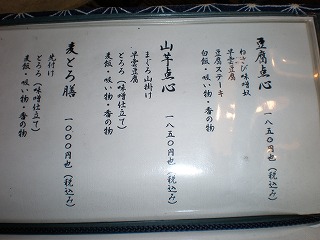 豆腐点心　一八五〇円也（税込み）
わさび味噌奴
早雲豆腐
豆腐ステーキ
白飯・吸い物・香の物
山芋点心　一八五〇円也（税込み）
まぐろ山掛け
早雲豆腐
とろろ（味噌仕立て）
麦飯・吸い物・香の物
麦とろ膳　一〇〇〇円也（税込み）
先付け
とろろ（味噌仕立て）
麦飯・吸い物・香の物